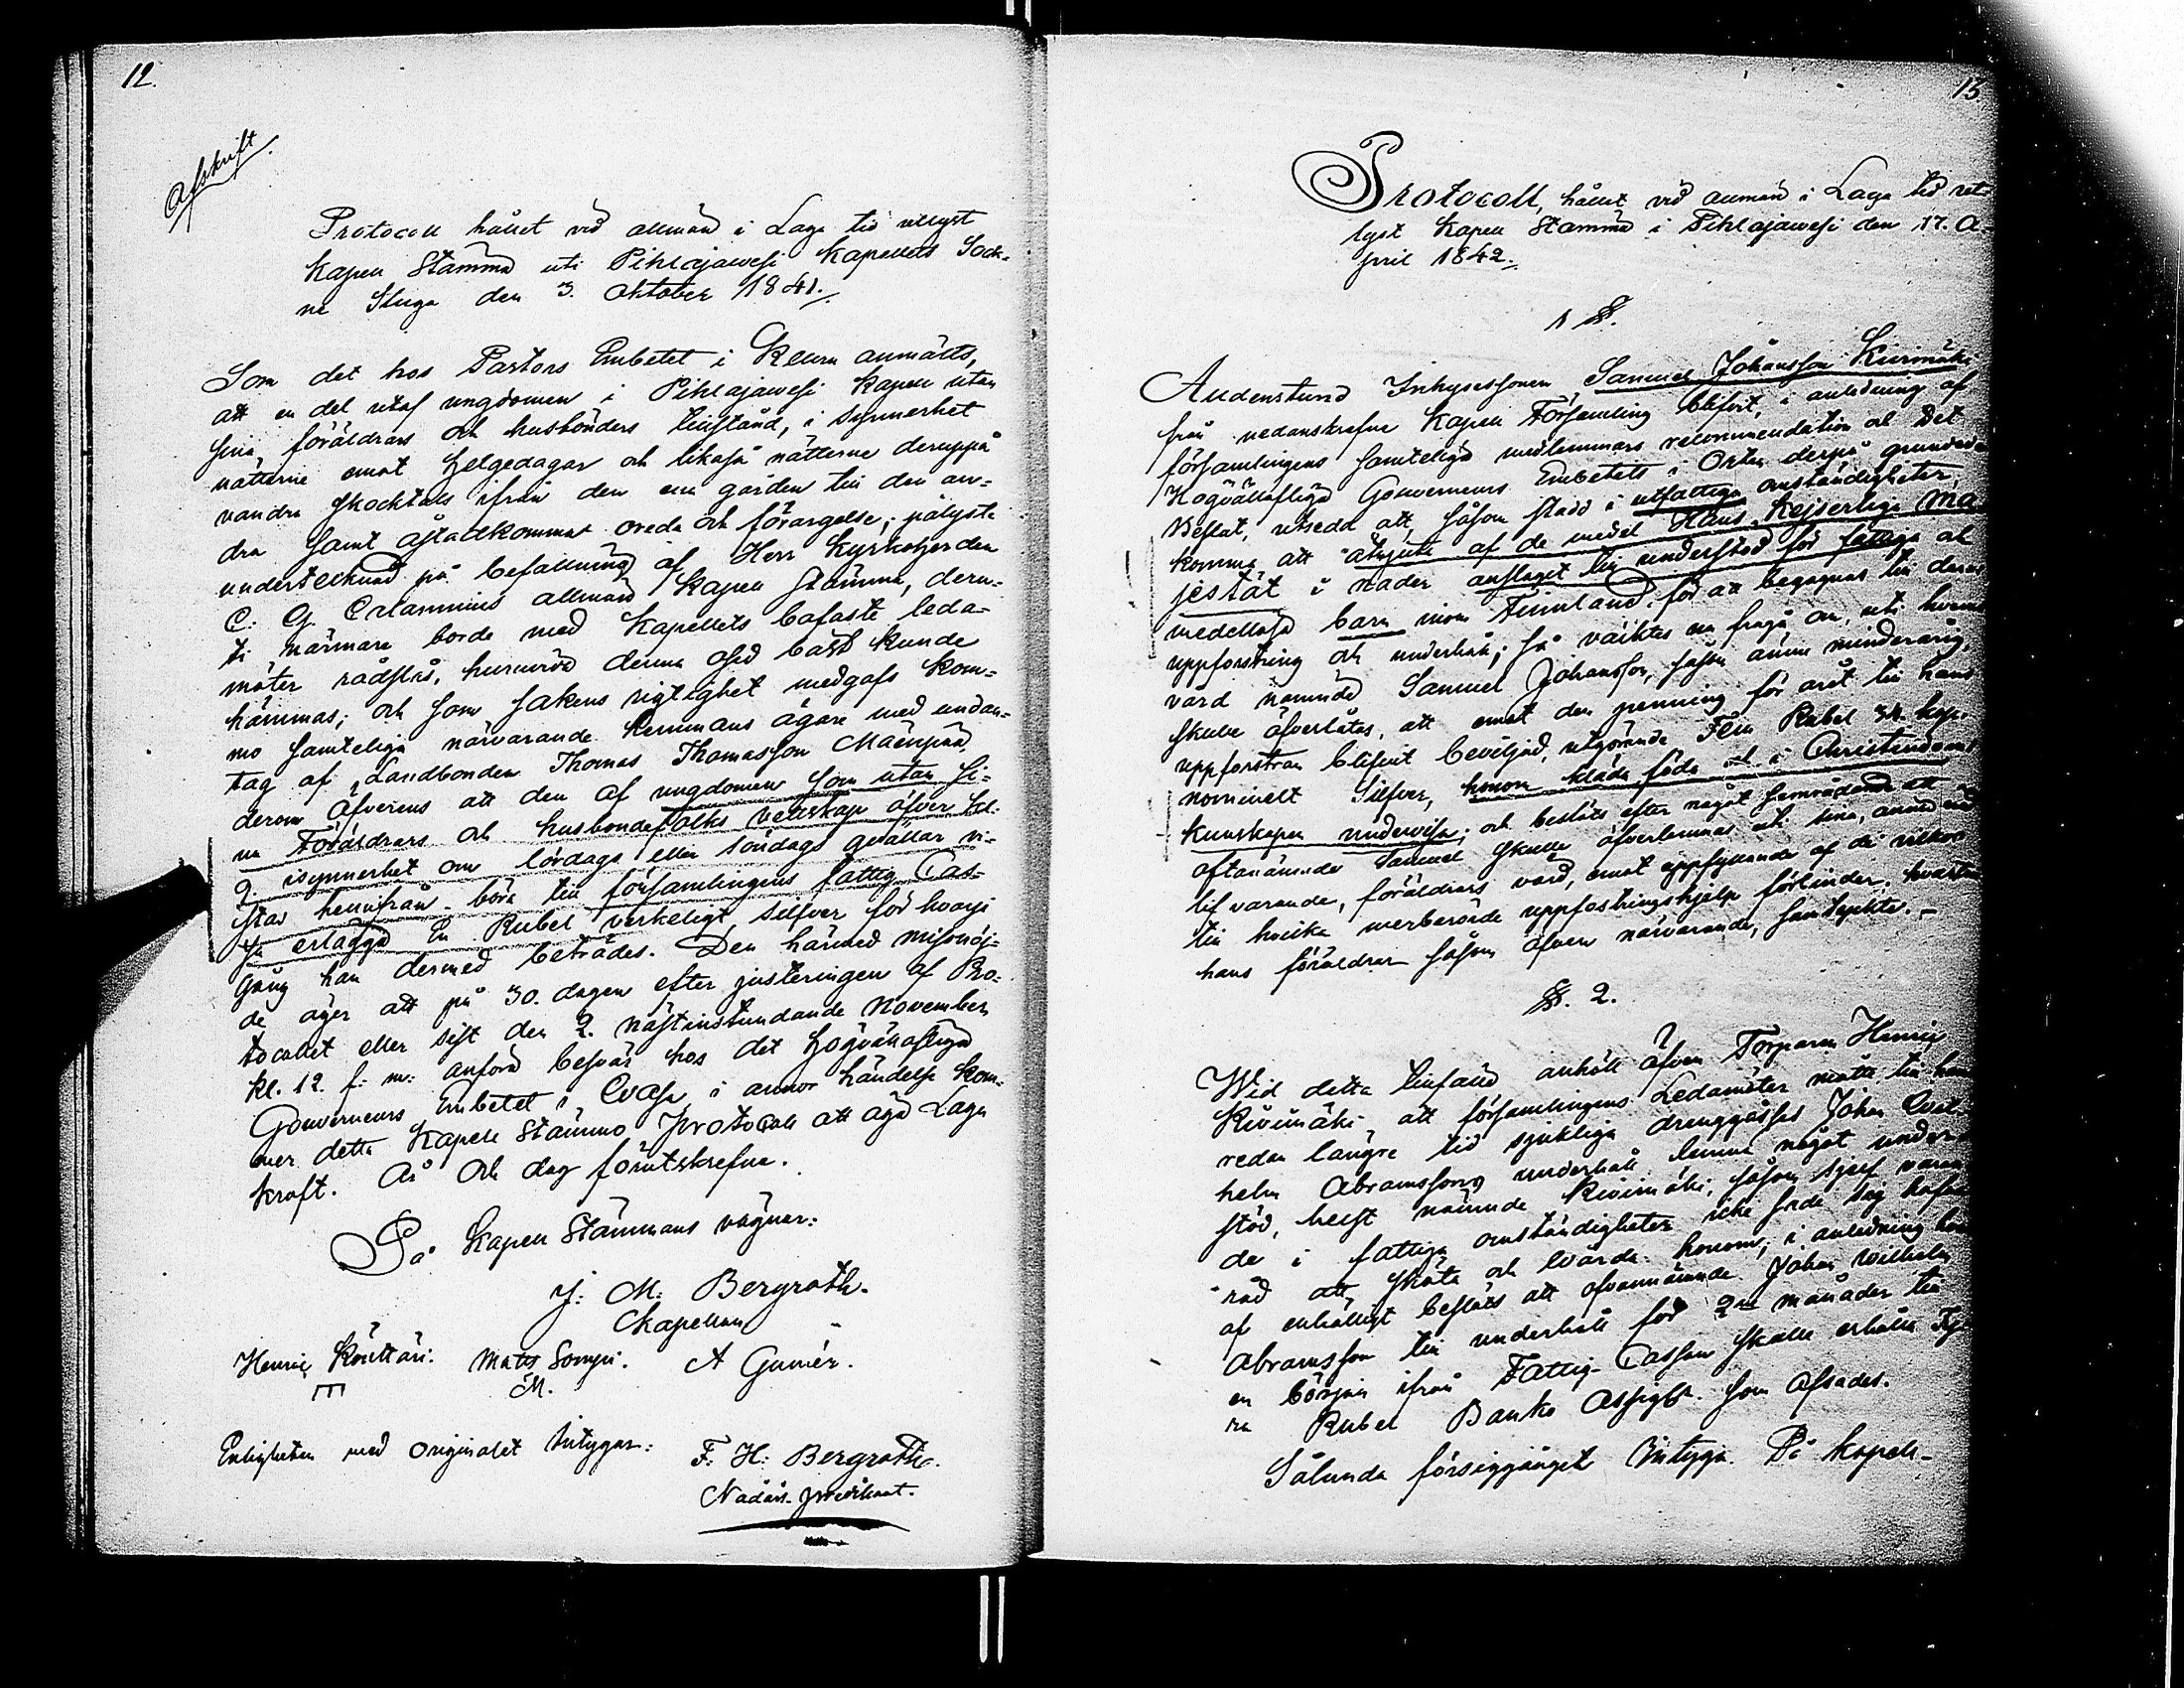 12.
Afskrift.
Protocoll hållet vid allmän i Laga tid utlyst
Kapell Stämma uti Pihlajawesi Kapellets Sock-
ne Stuga den 3. Oktober 1841.
Som det hos Pastors Embetet i Keuru anmälts,
att en del utaf ungdomen i Pihlajawesi Kapell utan
sina föräldrars och husbönders tillstånd, i synnerhet
nätterne emot helgedagar och likaså nätterne deruppå
vandra skocktals ifrån den ena gården till den an-
dra samt åstadkommat oreda och förargelse; pålyste
undertecknad på befallning af Herr Kyrkoherden
C. G. allmän Kapell stämma, deru-
ti närmare borde med Kapellets bofaste leda-
möter rådslås, huruvida denna osed bäst kunde
hämmas; och som sakens rigtighet medgafs kom-
mo samtelige närvarande hemmans ägare med undan-
tag af Landbonden Thomas Thomasson Mäenpää
derom öfverens att den af ungdomen som utan si-
na Föräldrars och husbondefolks vettskap öfver kl.
9. isynnerhet om lördags eller söndags qvällar vi-
stas hemifrån böra till församlingens fattig Cas-
sa erlägga En Rubel verkeligt silfver för hvarje
gång han dermed beträdes. Den härmed missnöj-
de äger att på 30. dagen efter justeringen af Pro-
tocollet eller sist den 2. nästinstundande November
kl. 12. f: m: anföra besvär hos det högvällofliga
Gouverneurs Embetet i Wasa i annor händelse kom-
mer detta Kapell Stämmo Protocoll att äga Laga
kraft. År och dag förutskrefne.
På Kapell Stämmans vägnar:
J: M: Bergroth.
Kapellan
Henric Könttäri. Matts Sompi. A Gumér.
M.
Enligheten med Originalet Intygar: F: H: Bergroth.
Nådårs-predikant.
13
Protocoll, hållit vid allmän i Laga tid ut-
lyst Kapell Stämma i Pihlajawesi den 17. A-
pril 1842.
1 §.
Alldenstund Inhysessonen Samuel Johansson Kivimäki
från nedanskrefne Kapell Församling blifvit, i anledning af
församlingens samtelige medlemmars recommendation och Det
Högvällofliga Gouverneurs Embetets i Orten derpå grundade
Beslut, utsedd att, såsom stadd i utfattiga omständigheter,
komma att åtnjuta af de medel Hans Kejserliga Ma-
jestät i nåder anslaget till understöd för fattiga och
medellösa barn inom Finnland, för att begagnas till deras
uppfostring och underhåll; så väcktes nu fråga om, uti hvems
vård nämnde Samuel Johansson, såsom ännu minderårig,
skulle öfverlåtas, att emot den penning för året till hans
uppfostran blifvit beviljad, utgörande Fem Rubel kop.
nominelt Silfver, honom kläda föda och i Christendoms
kunskapen undervisa; och beslöts efter något samrådande att
oftanämnde Samuel skulle öfverlemnas uti sina, ännu vid
lif varande, föräldrars vård, emot uppfyllande af de vilkor
till hvilka merberörde uppfostringshjelp förbinder, hvartill
hans föräldrar såsom äfven närvarande, samtyckte. —
§. 2.
Wid detta tillfälle anhöll äfven Torparen Henric
Kivimäki, att församlingens Ledamöter måtte till
redan längre tid sjukliga drenggossen Johan Wil-
helm Abramssons underhåll lemna något under-
stöd, helst nämnde Kivimäki, såsom sjelf varan-
de i fattiga omständigheter icke sade sig hafva
råd att sköta och vårda honom; i anledning här-
af enhälligt beslöts att ofvannämnde Johan Wilhelm
Abramsson till underhåll för 2 månader till
en början ifrån Fattig-Cassan skulle erhålla Fy-
ra Rubel Banko Assigt. som afsades.
Sålunda försiggånget Intyga. På Kapell-